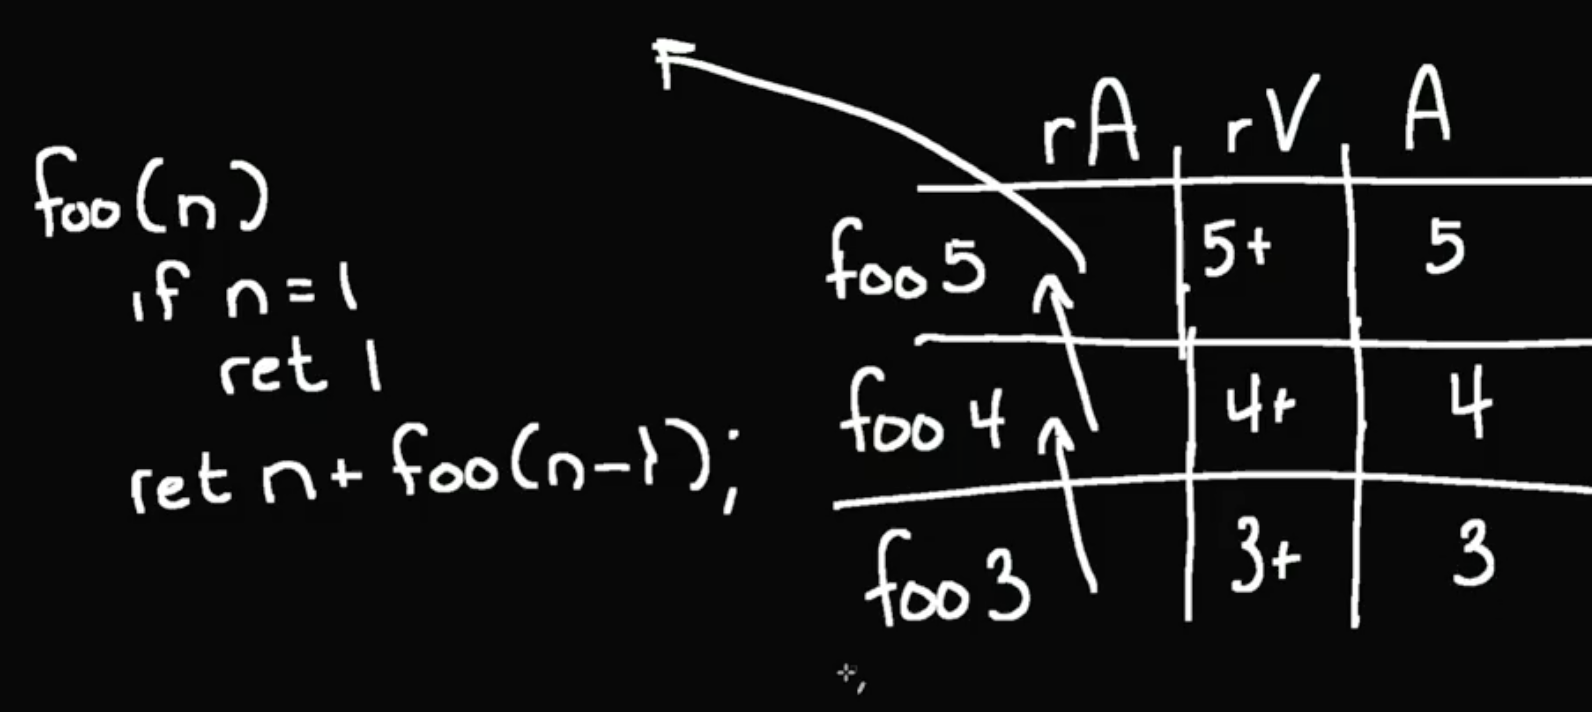 foo(n)
if n = 1
ret 1
ret n + foo(n-1);
rA rV A
foo 5 5+ 5
foo 4 4+ 4
foo 3 3+ 3